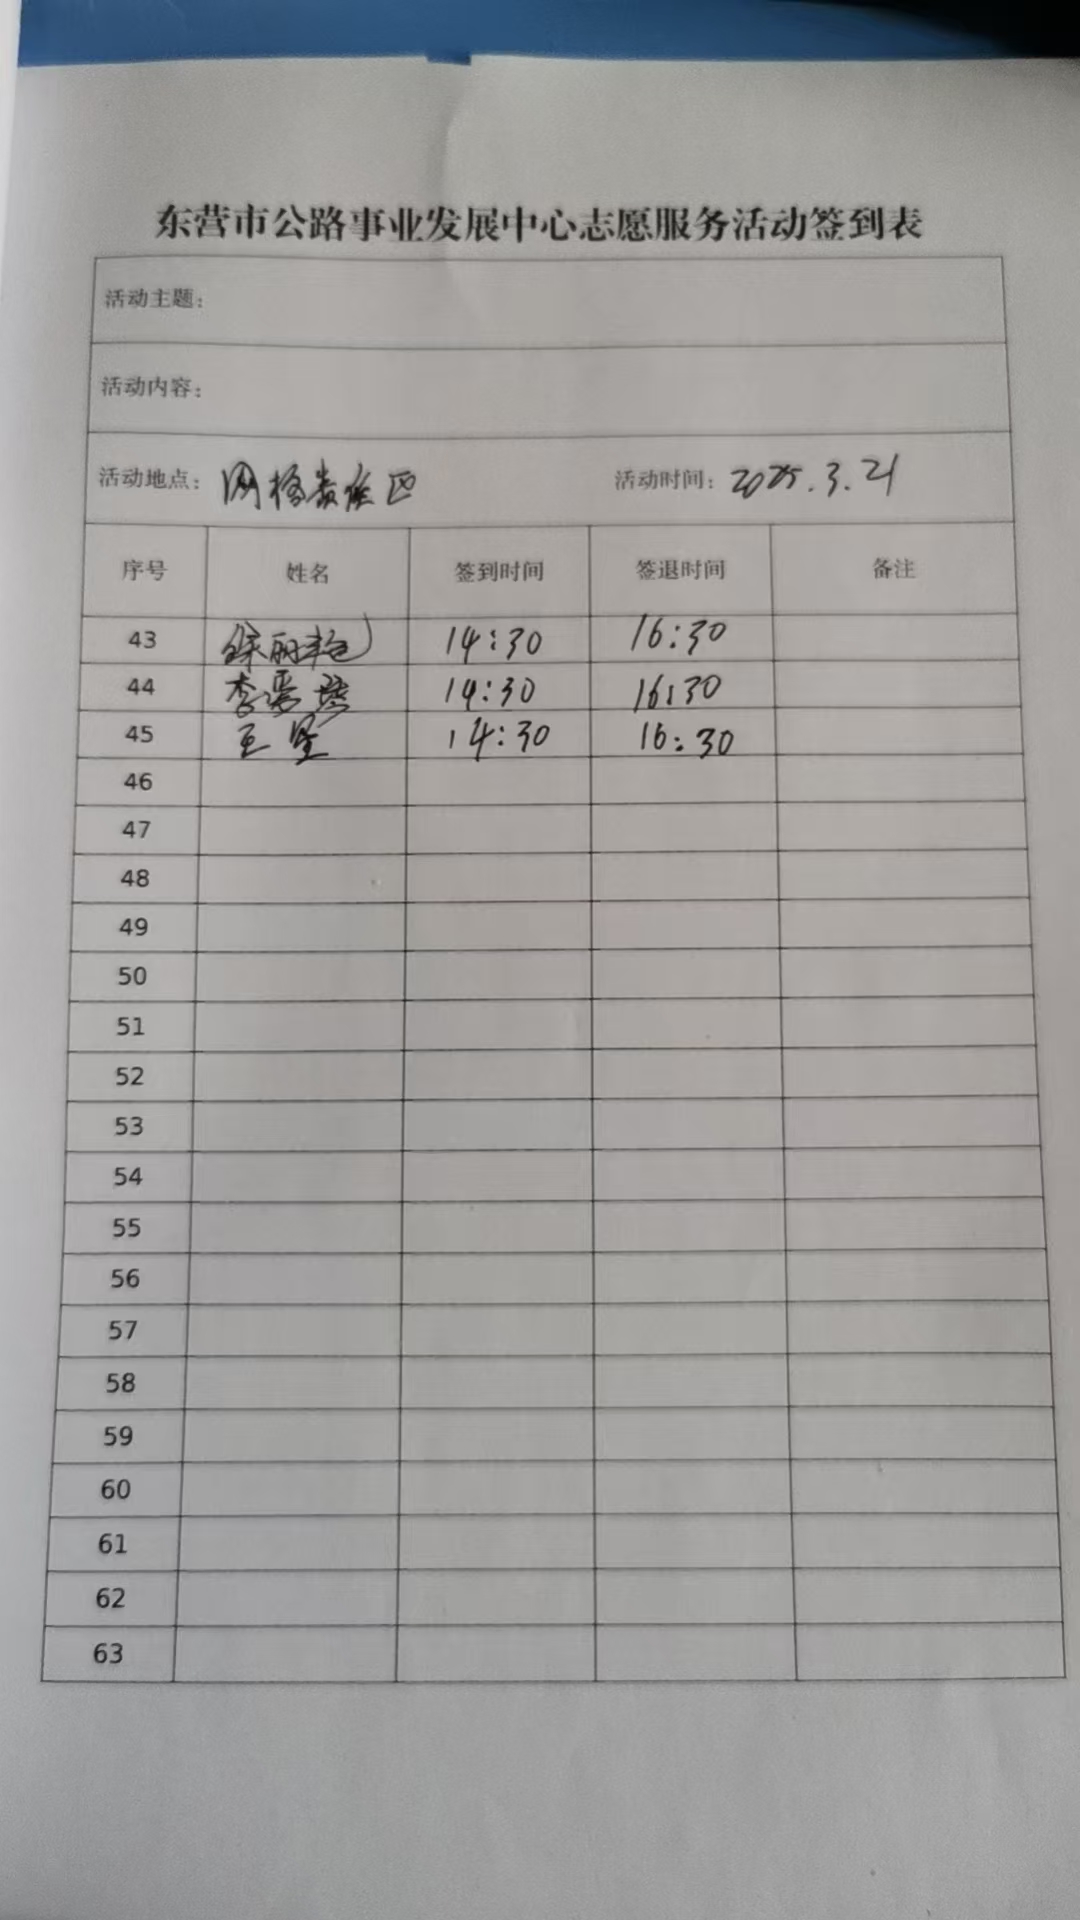 东营市公路事业发展中心志愿服务活动签到表
活动主题：
活动内容：
活动地点：网格责任区 活动时间：2025.3.21
序号 姓名 签到时间 签退时间 备注
43 徐丽艳 14:30 16:30
44 李 14:30 16:30
45 王坚 14:30 16:30
46
47
48
49
50
51
52
53
54
55
56
57
58
59
60
61
62
63